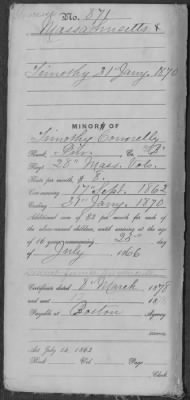 No. 871
Massachusetts &
Timothy 31st Jany. 1870
MINOR of
Timothy Connelly
Rank, Priv. Co. "B"
Reg't 28th Mass. Vols.
Rate per month, $ 8.
Commencing 17 Sept. 1862
Ending 31st Jany. 1870.
Additional sum of $2 per month for each of
the above-named children, until arriving at the age
of 16 years, commencing 25th
of July 1866
Certificate dated 8th March 1878
and sent
Payable at Boston Agency
Act July 14, 1862
Book Vol. Page
Clerk